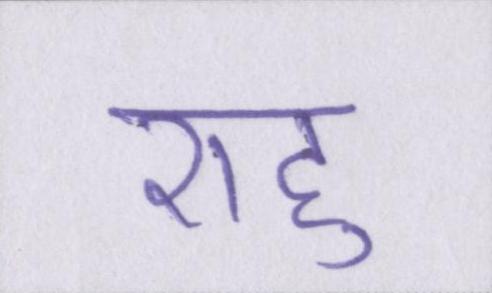 राहु